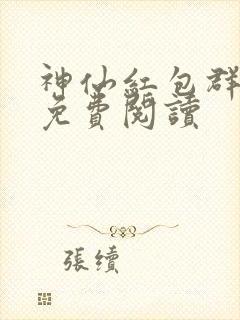 神仙紅包群
免費閱讀
張續